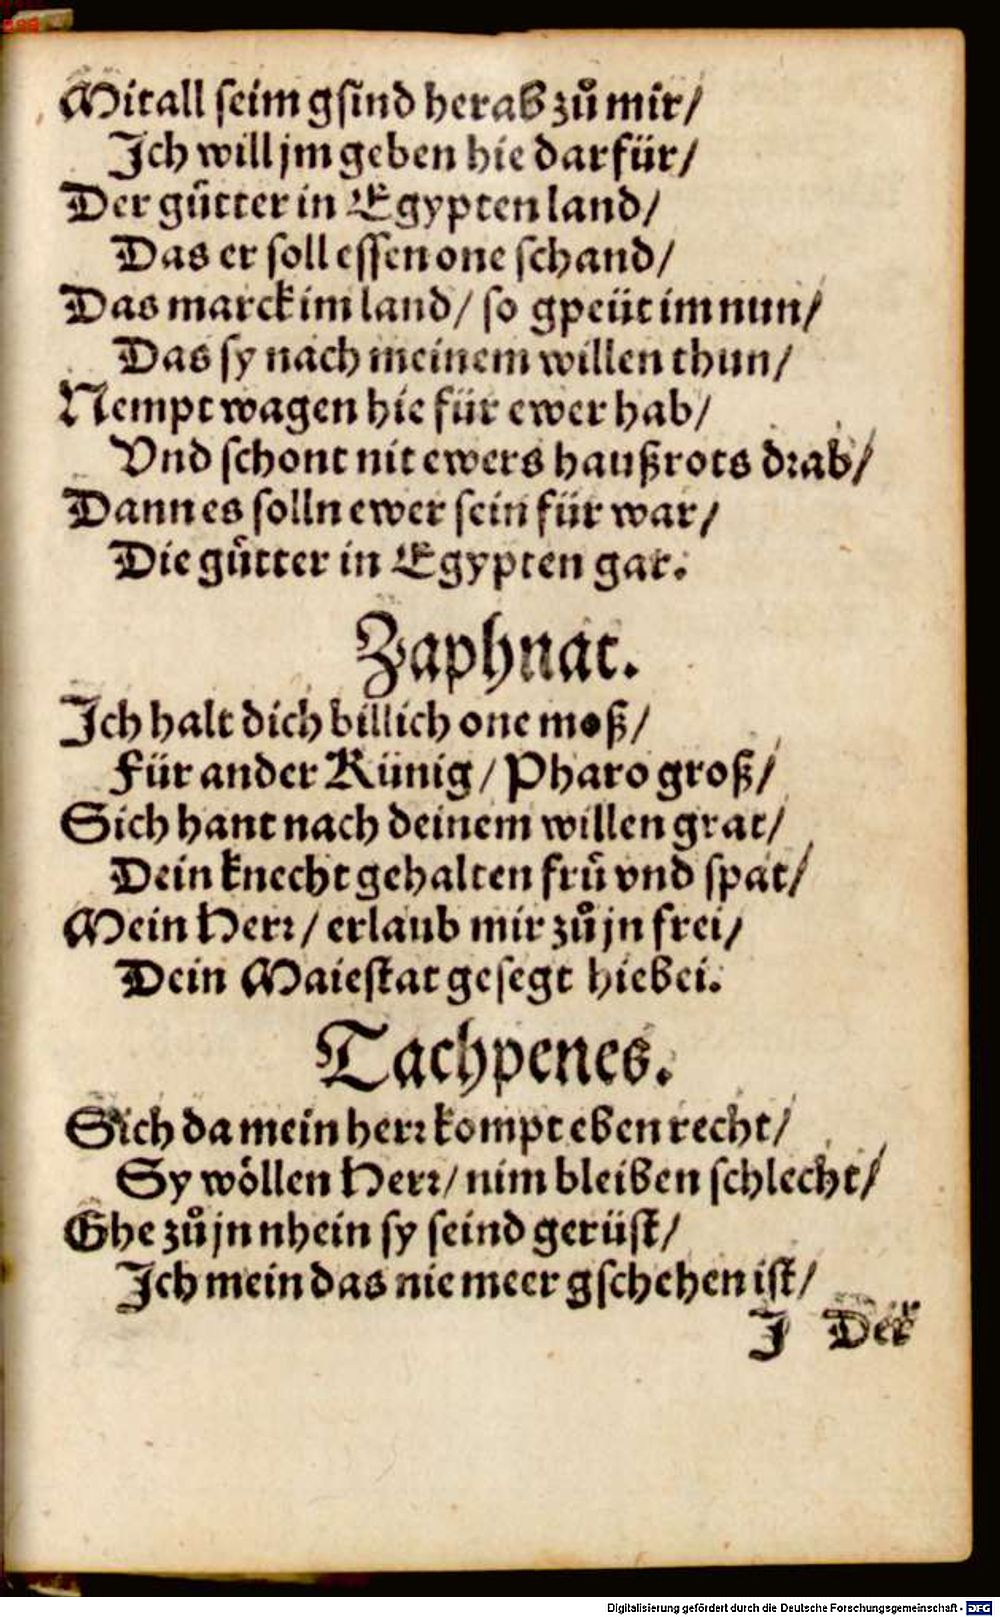 Mit all seim gsind herab zů mir/
Ich will jm geben hie darfür/
Der gütter in Egypten land/
Das er soll essen one schand/
Das marck im land/ so gpeüt im nun/
Das sy nach meinem willen thun/
Nempt wagen hie für ewer hab/
Vnd schont nit ewers haußrots drab/
Dann es solln ewer sein für war/
Die gütter in Egypten gar.
Zaphnat.
Ich halt dich billich one moß/
Für ander Künig/ Pharo groß/
Sich hant nach deinem willen grat/
Dein knecht gehalten frü vnd spat/
Mein Herr/ erlaub mir zů jn frei/
Dein Maiestat gesegt hiebei.
Tachpenes.
Sich da mein herr kompt eben recht/
Sy wöllen Herr/ nim bleiben schlecht/
Ghe zů jn nhein sy seind gerüst/
Ich mein das nie meer gschehen ist/
I Der
Digitalisierung gefördert durch die Deutsche Forschungsgemeinschaft - DFG